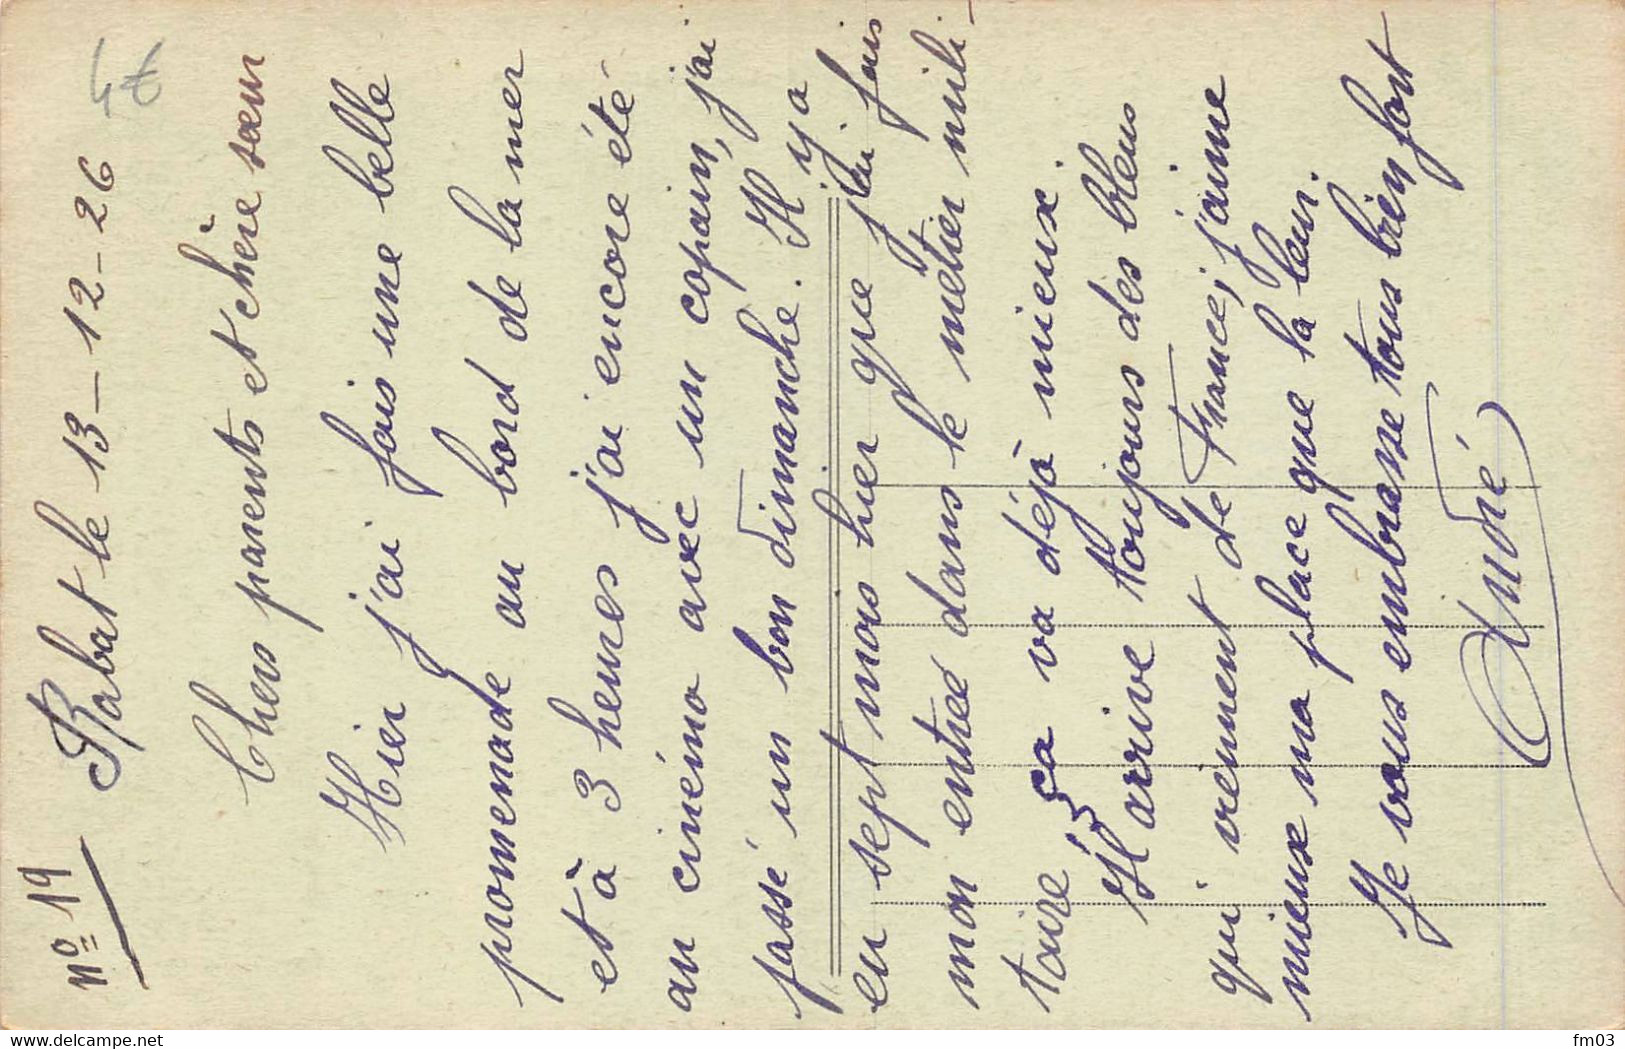 n° 19 Rabat le 13-12-26
4€
Chers parents et chère sœur
Hier j'ai fais une belle
promenade au bord de la mer
et à 3 heures j'ai encore été
au cinéma avec un copain, j'ai
passé un bon dimanche. Il y a
eu sept mois hier que j'ai fais
mon entrée dans le métier mili-
taire ça va déjà mieux.
Il arrive toujours des bleus
qui viennent de France, j'aime
mieux ma place que la leur.
Je vous embrasse tous bien fort
André
www.delcampe.net
fm03